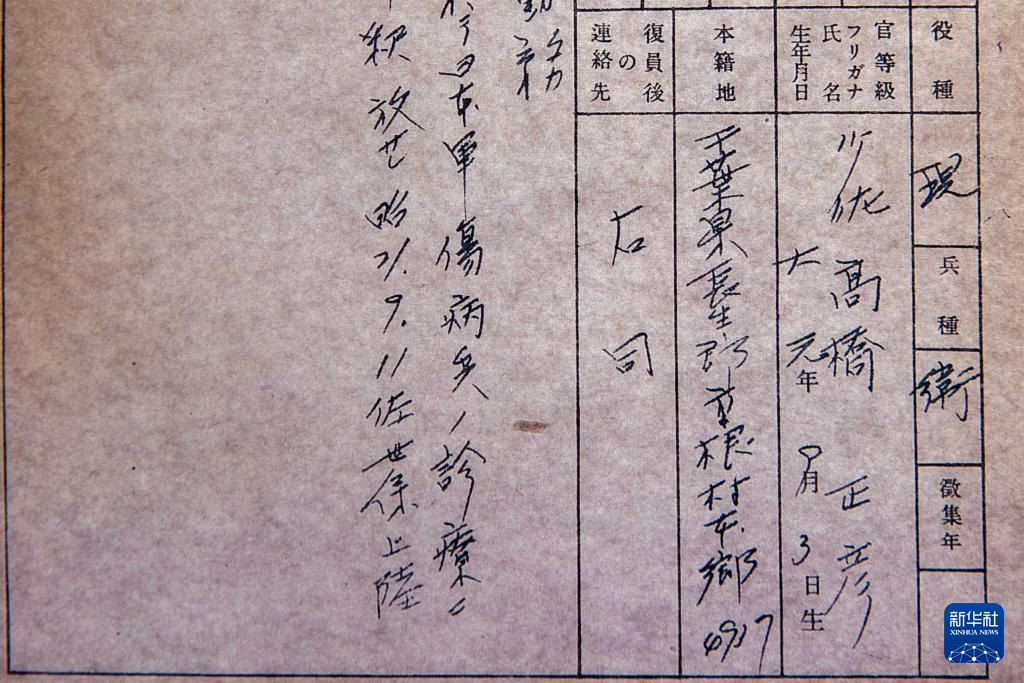 役種
現
兵種
衛
徴集年
官等級
フリガナ
氏名
生年月日
少佐 高橋 正彦
大 元年 月 3日生
本籍地
千葉県長生郡 根村本郷
復員後の連絡先
右同
日本軍傷病兵ノ診療ニ
釈放セ 昭21.9.11佐世保上陸
新华社
XINHUA NEWS